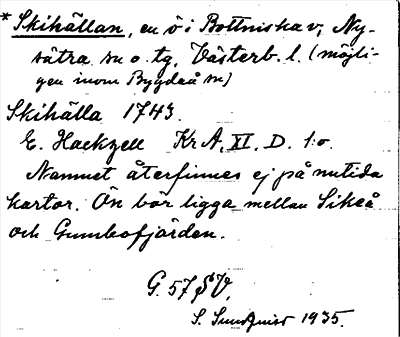 * Skihällan, en ö i Bottniska v., Ny-
sätra sn o. tg, Västerb. l. (möjli-
gen inom Bygdeå sn)
Skihälla 1743.
E. Hackzell Kr A, XI. D. 1:o.
Namnet återfinnes ej på nutida
kartor. Ön bör ligga mellan Sikeå
och Gumbofjärden.
G. 57 S V,
S. Sundquist 1935.